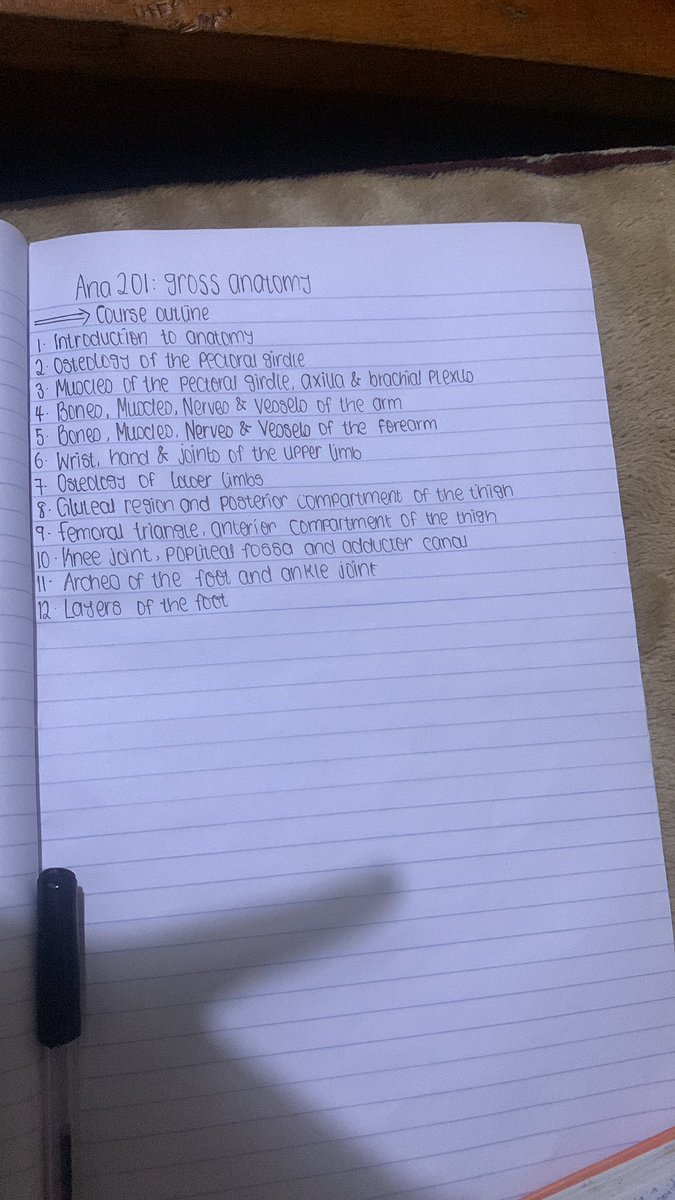 Ana 201: gross anatomy
⟹ Course outline
1. Introduction to anatomy
2. Osteology of the pectoral girdle
3. Muscles of the pectoral girdle, axilla & brachial plexus
4. Bones, Muscles, Nerves & Vessels of the arm
5. Bones, Muscles, Nerves & Vessels of the forearm
6. Wrist, hand & joints of the upper limb
7. Osteology of lower limbs
8. Gluteal region and posterior compartment of the thigh
9. Femoral triangle, anterior compartment of the thigh
10. Knee joint, popliteal fossa and adductor canal
11. Arches of the foot and ankle joint
12. Layers of the foot